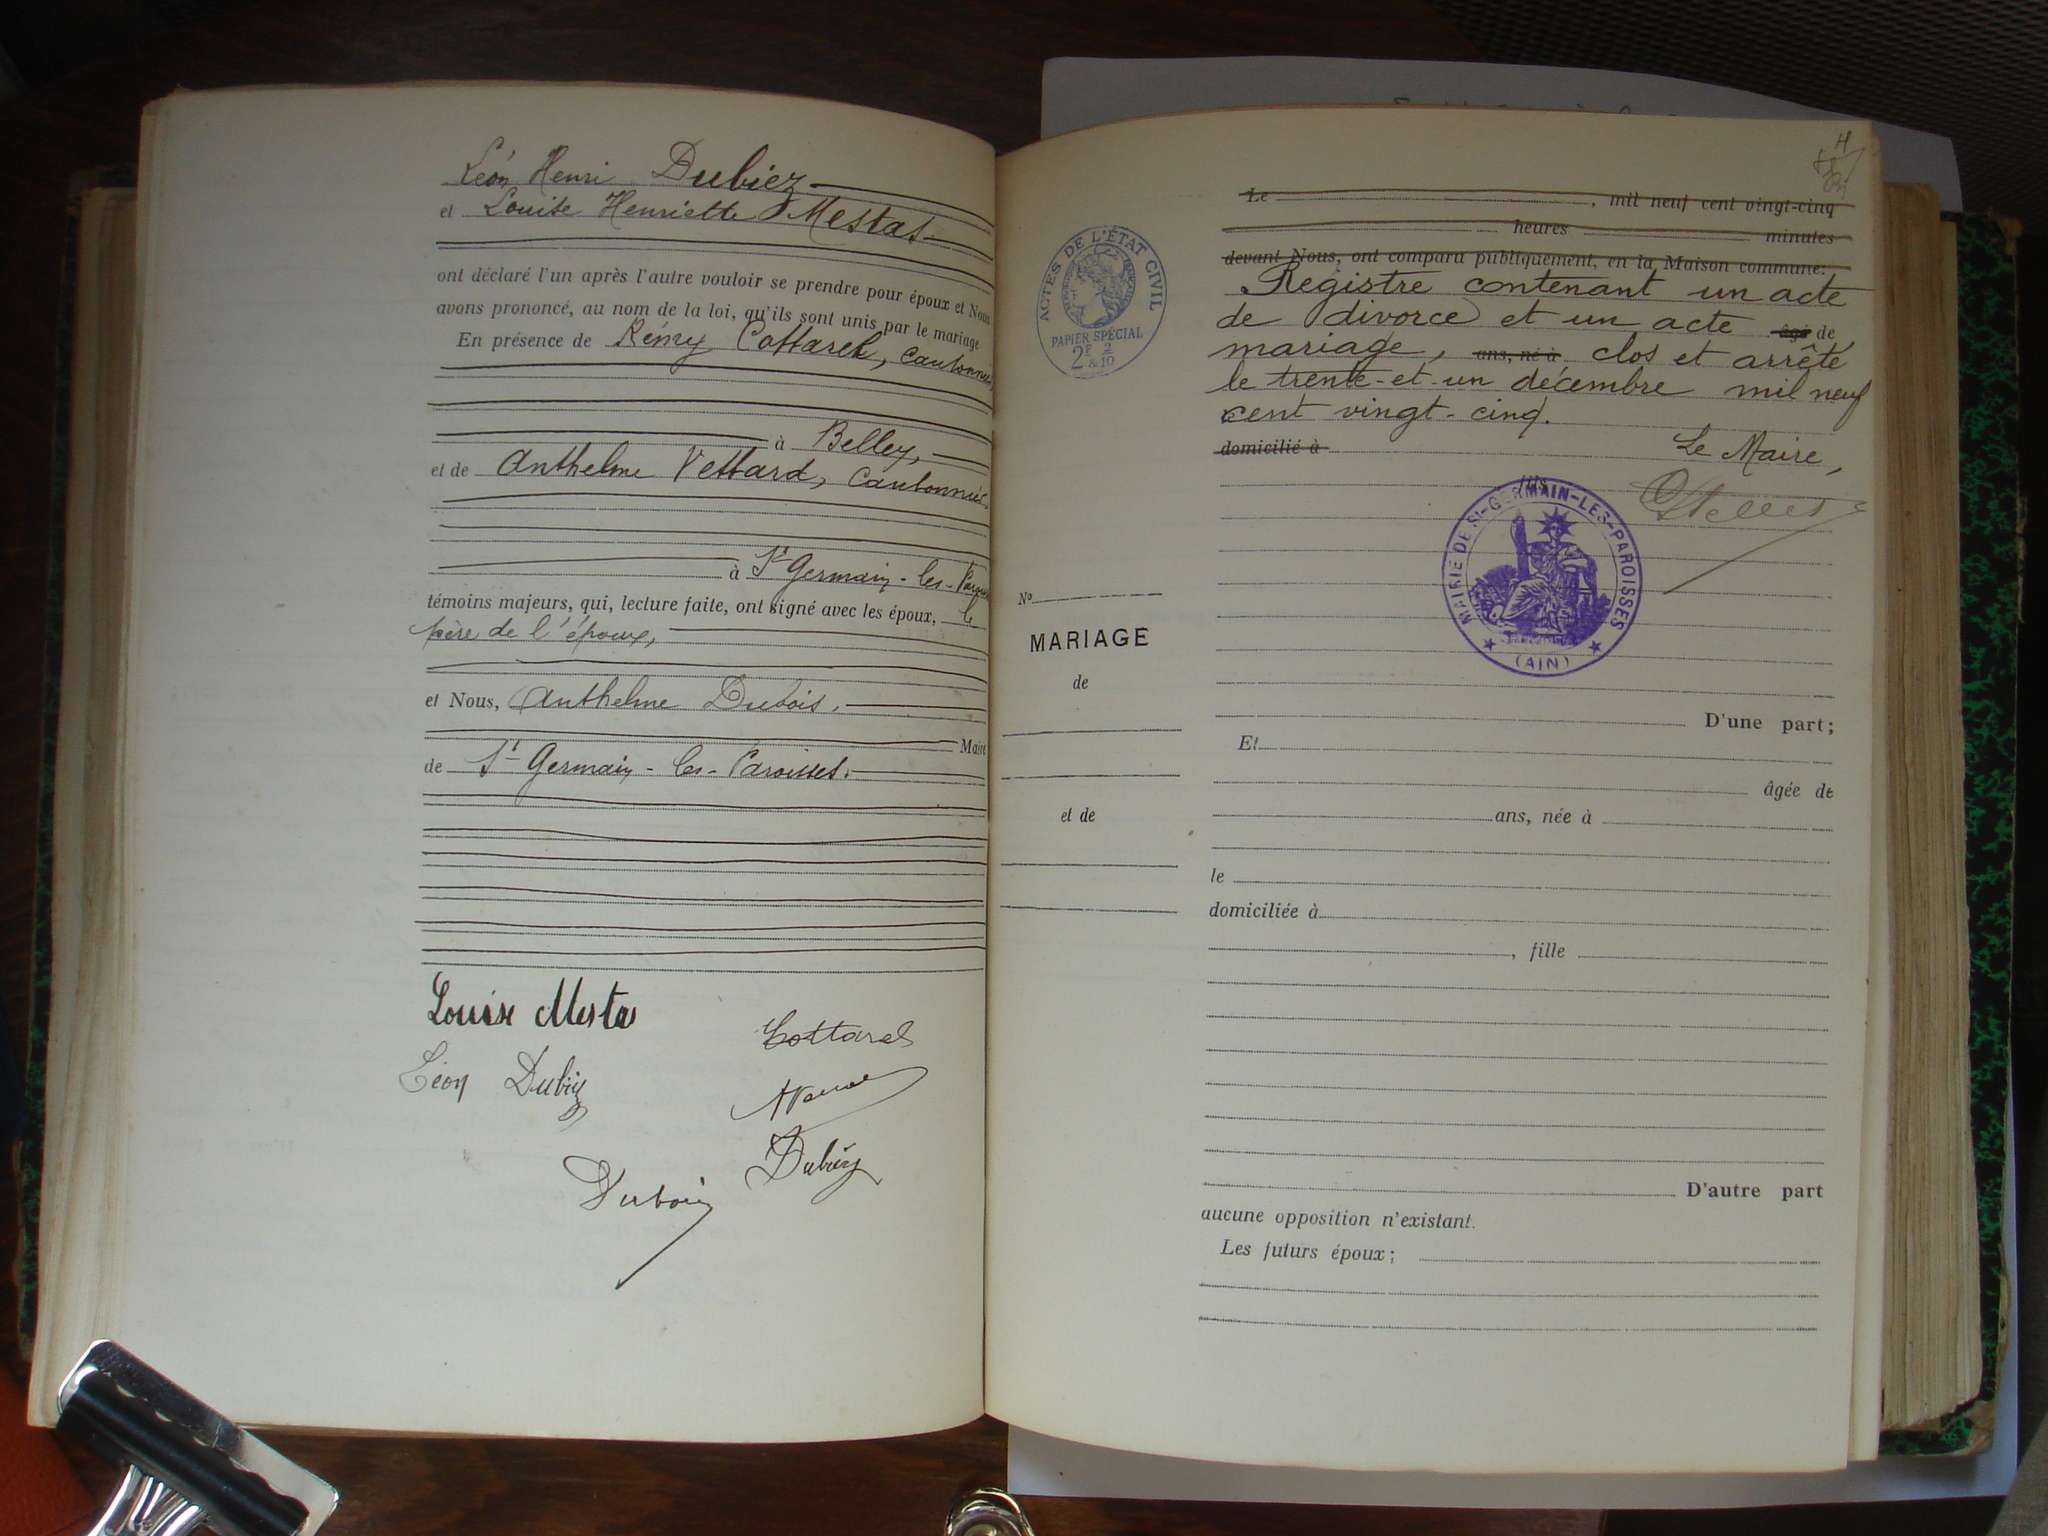 Léon Henri Dubiez
et Louise Henriette Mestas
ont déclaré l'un après l'autre vouloir se prendre pour époux et Nous
avons prononcé, au nom de la loi, qu'ils sont unis par le mariage
En présence de Rémy Cottarel, cantonnier,
à Belley,
et de Anthelme Vettard, Cantonnier,
à St Germain-les-Paroisses
témoins majeurs, qui, lecture faite, ont signé avec les époux, le
père de l'époux,
et Nous, Anthelme Dubois,
Maire
de St Germain-les-Paroisses.
Louise Mestas
Cottarel
Léon Dubiez
Dubiez
Dubois
4
ACTES DE L'ÉTAT CIVIL
PAPIER SPÉCIAL
2F 2/10
No
MARIAGE
de
et de
Le , mil neuf cent vingt-cinq
heures minutes
devant Nous, ont comparu publiquement, en la Maison commune:
Registre contenant un acte
de divorce et un acte âgé de
mariage, ans, né à clos et arrêté
le trente-et-un décembre mil neuf
cent vingt-cinq.
domicilié à Le Maire,
MAIRIE DE ST-GERMAIN-LES-PAROISSES
(AIN)
D'une part;
Et
âgée de
ans, née à
le
domiciliée à
, fille
D'autre part
aucune opposition n'existant.
Les futurs époux;